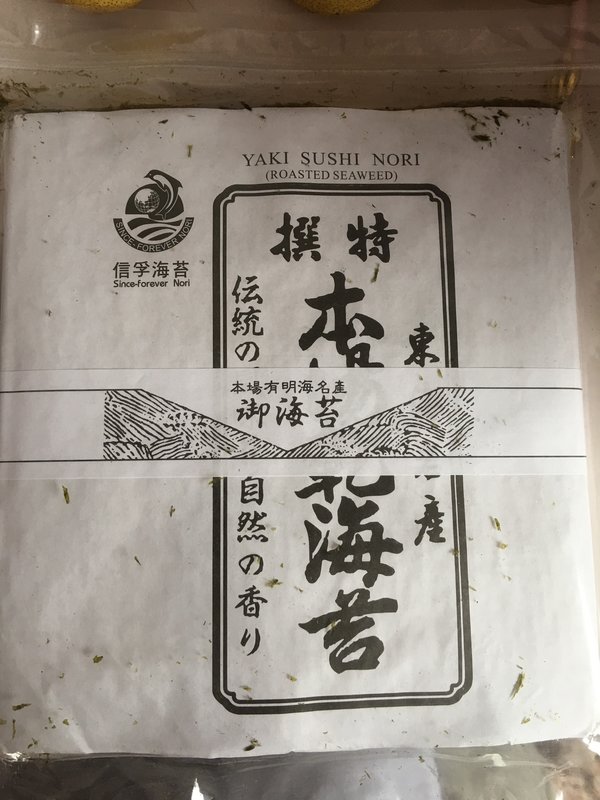 YAKI SUSHI NORI
(ROASTED SEAWEED)
SINCE-FOREVER NORI
信孚海苔
Since-forever Nori
特撰
東
産
本
海苔
伝統の
自然の香り
本場有明海名產
御海苔